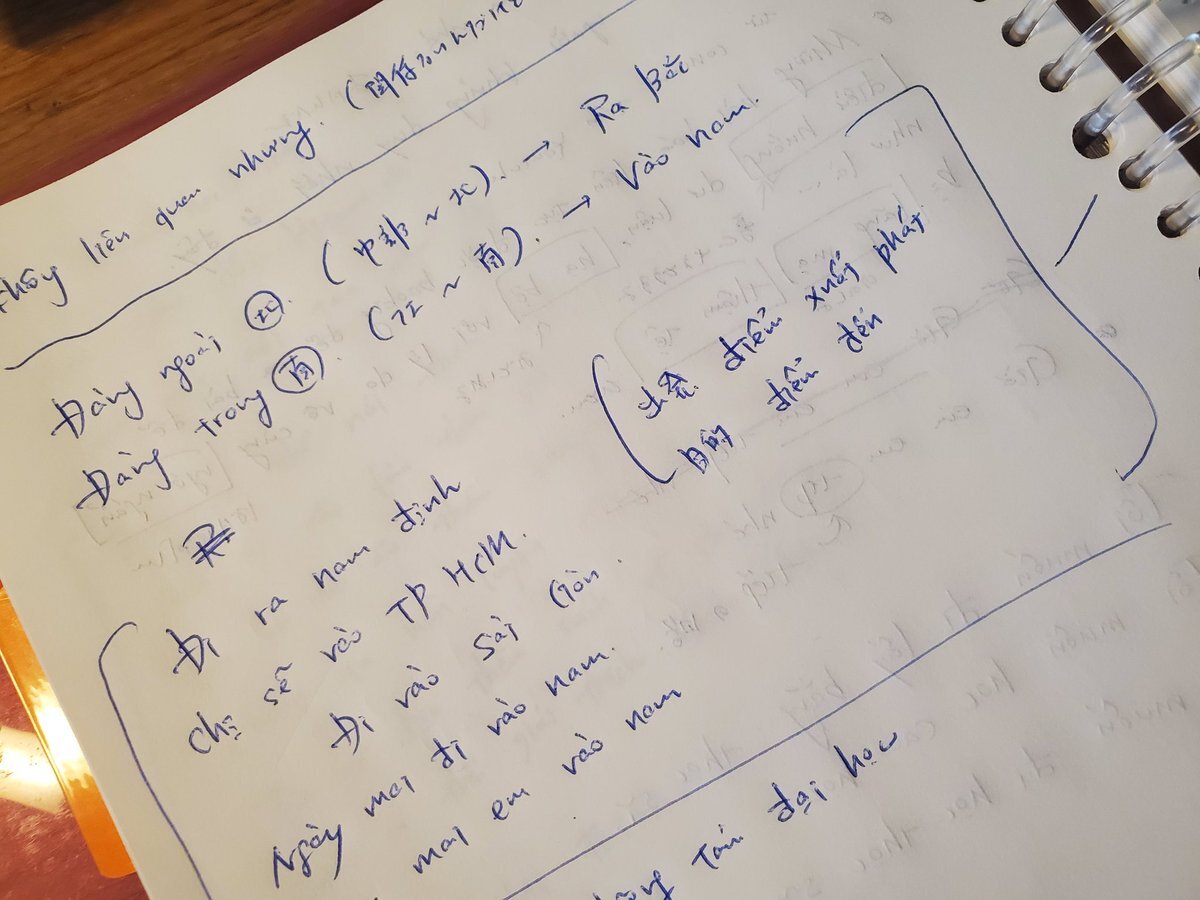 thấy liên quan nhưng. (関係ない
Đàng ngoài 北. (中部 ~ 北). → Ra Bắc
Đàng trong 南. (フエ ~ 南). → Vào nam.
出発 điểm xuất phát
目的 điểm đến
Đi ra nam định
Chị sẽ vào TP HCM.
Đi vào Sài Gòn.
Ngày mai đi vào nam.
mai em vào nam
đại học